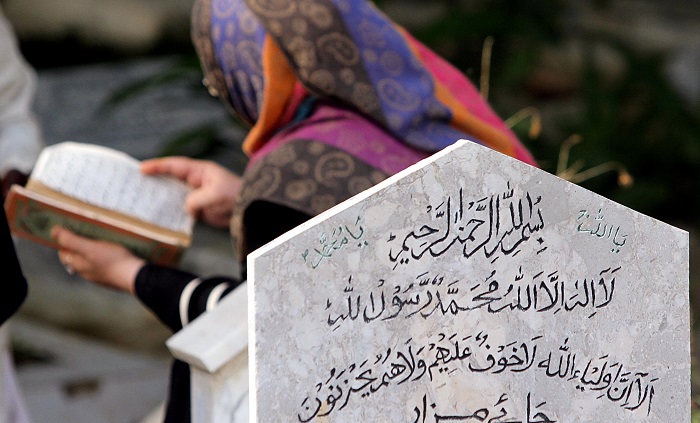 یا اللہ
یا محمد
بِسْمِ اللهِ الرَّحْمٰنِ الرَّحِيْمِ
لَا اِلٰهَ اِلَّا اللهُ مُحَمَّدٌ رَّسُوْلُ اللهِ
اَلَا اِنَّ اَوْلِيَاءَ اللهِ لَا خَوْفٌ عَلَيْهِمْ وَلَا هُمْ يَحْزَنُوْنَ
جائے مزار